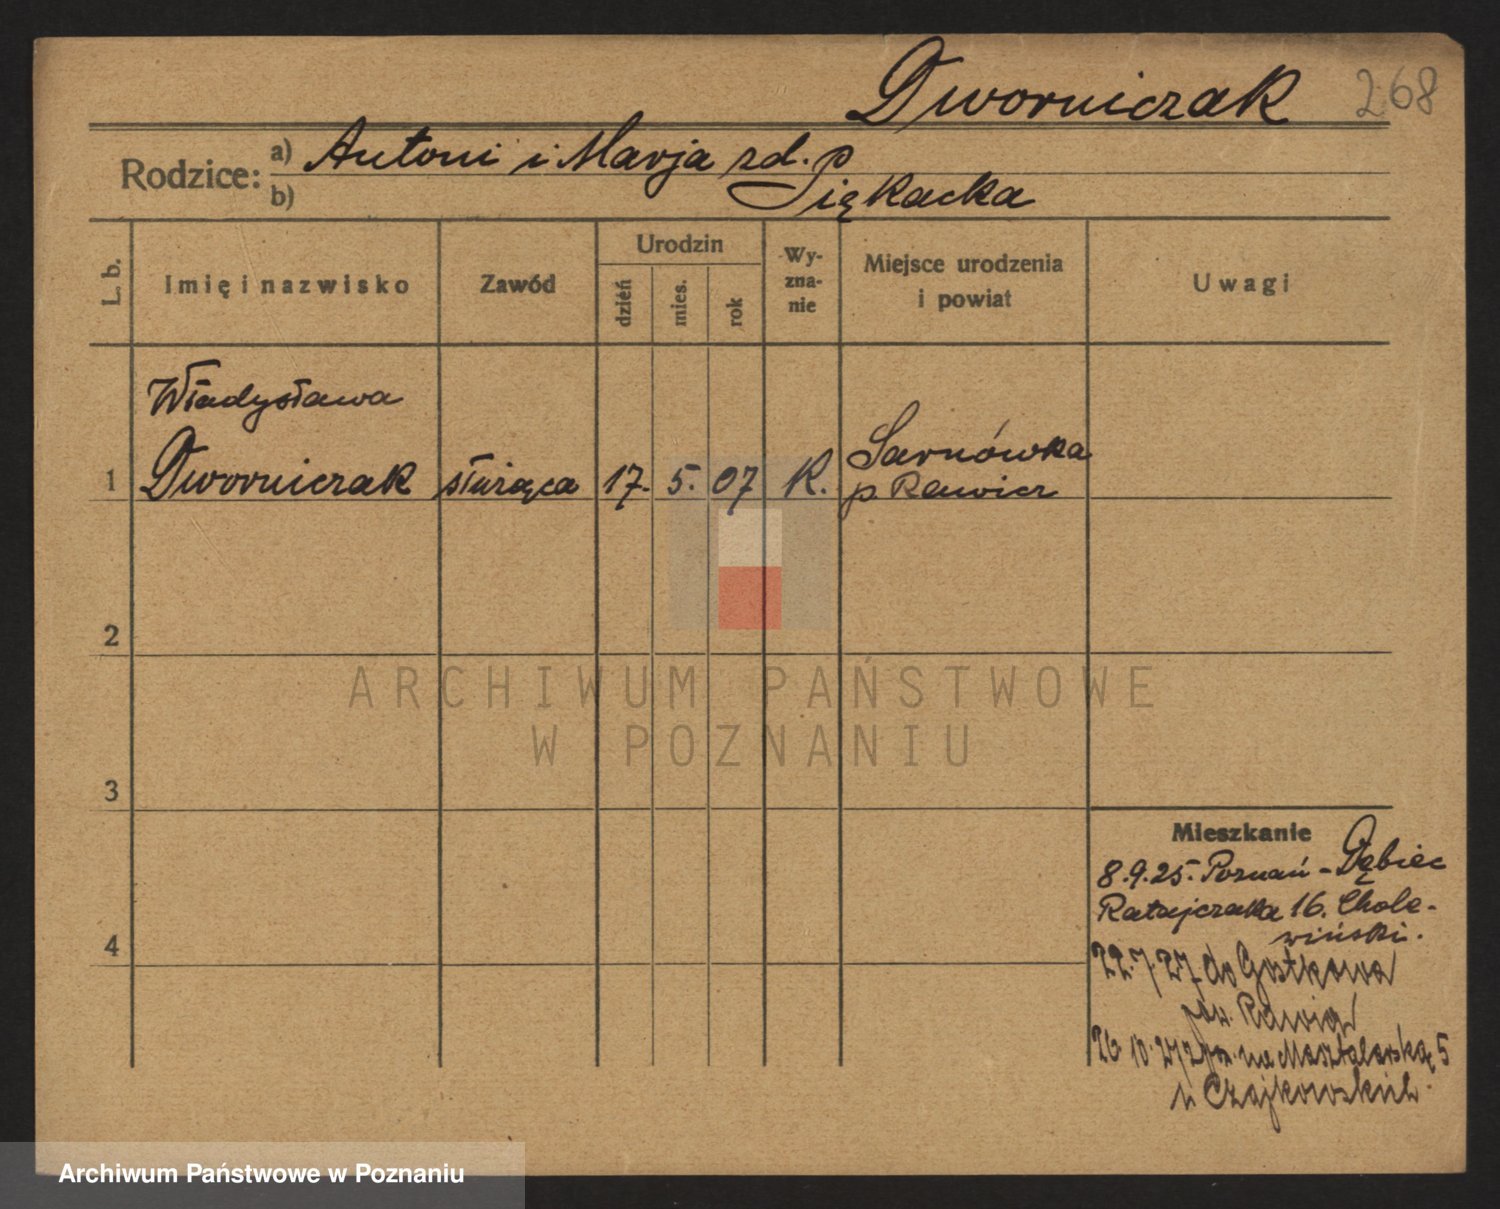 Dworniczak 268
Rodzice: a) Antoni i Marja zd. p
b) Piękacka
L. b.
Imię i nazwisko
Zawód
Urodzin
dzień
mies.
rok
Wy-
zna-
nie
Miejsce urodzenia
i powiat
Uwagi
Władysława
1 Dworniczak służąca 17. 5. 07 K. Sarnówka
p Rawicz
2
3
4
Mieszkanie
8.9.25. Poznań - Dębiec
Ratajczaka 16. Chole-
wiński.
22.7.27 do Gostkowa
pow. Rawicz
26 10.27 na Masztalarską 5
u Czajkowskich.
ARCHIWUM PAŃSTWOWE
W POZNANIU
Archiwum Państwowe w Poznaniu